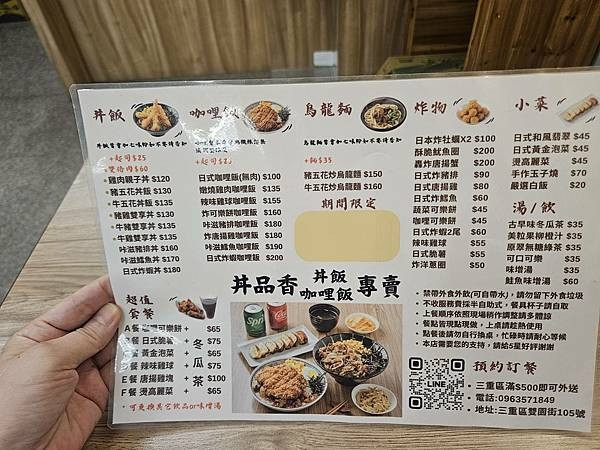 丼飯
丼飯皆會加七味粉如不要請告知
+起司$25
雙倍肉$60
雞肉親子丼 $120
豬五花丼飯 $130
牛五花丼飯 $130
豬雞雙享丼 $130
豬牛雙享丼 $130
牛雞雙享丼 $130
咔滋豬排丼 $160
咔滋鱈魚丼 $170
日式炸蝦丼 $180
咖哩飯
+起司$25
日式咖哩飯(無肉) $100
嫩燒雞肉咖哩飯 $135
辣味雞球咖哩飯 $150
炸可樂餅咖哩飯 $140
咔滋豬排咖哩飯 $160
炸唐揚雞咖哩飯 $180
咔滋鱈魚咖哩飯 $190
日式炸蝦咖哩飯 $200
烏龍麵
烏龍麵皆會加七味粉如不要請告知
+麵$35
豬五花炒烏龍麵 $150
牛五花炒烏龍麵 $160
期間限定
炸物
日本炸牡蠣X2 $100
酥脆魷魚圈 $100
轟炸唐揚蟹 $100
日式炸豬排 $90
日式唐揚雞 $80
日式炸鱈魚 $60
蔬菜可樂餅 $45
咖哩可樂餅 $45
日式炸蝦2尾 $60
辣味雞球 $55
日式脆薯 $55
炸洋蔥圈 $50
小菜
日式和風翡翠 $45
日式黃金泡菜 $45
燙高麗菜 $45
手作玉子燒 $70
嚴選白飯 $20
湯/飲
古早味冬瓜茶 $35
美粒果柳橙汁 $35
原萃無糖綠茶 $35
可口可樂 $35
味增湯 $35
鮭魚味增湯 $60
丼品香 丼飯 咖哩飯 專賣
超值
套餐
A餐 咖哩可樂餅+ $65
餐 日式脆薯+ $75
餐 黃金泡菜+ $65
餐 辣味雞球+ $75
E餐 唐揚雞塊+ $100
F餐 燙高麗菜+ $65
冬瓜茶
*可更換其它飲品or味增湯
Sprite
・禁帶外食外飲(可自帶水),請勿留下外食垃圾
・不收服務費採半自助式,餐具杯子請自取
・上餐順序依照現場作業調整請多體諒
・餐點皆現點現做,上桌請趁熱使用
・點餐後請勿自行換桌,忙碌時請耐心等候
・本店需要您的支持,請給5星好評謝謝
LINE
預約訂餐
・三重區滿$500即可外送
・電話:0963571849
・地址:三重區雙園街105號